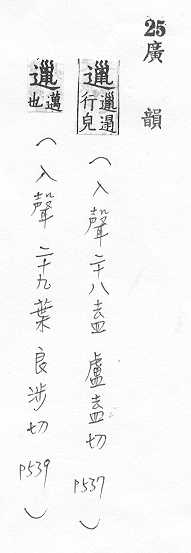 25 廣韻
邋 邋遢行皃 (入聲 二十八盍 盧盍切 P537)
邋 邁也 (入聲 二十九葉 良涉切 P539)